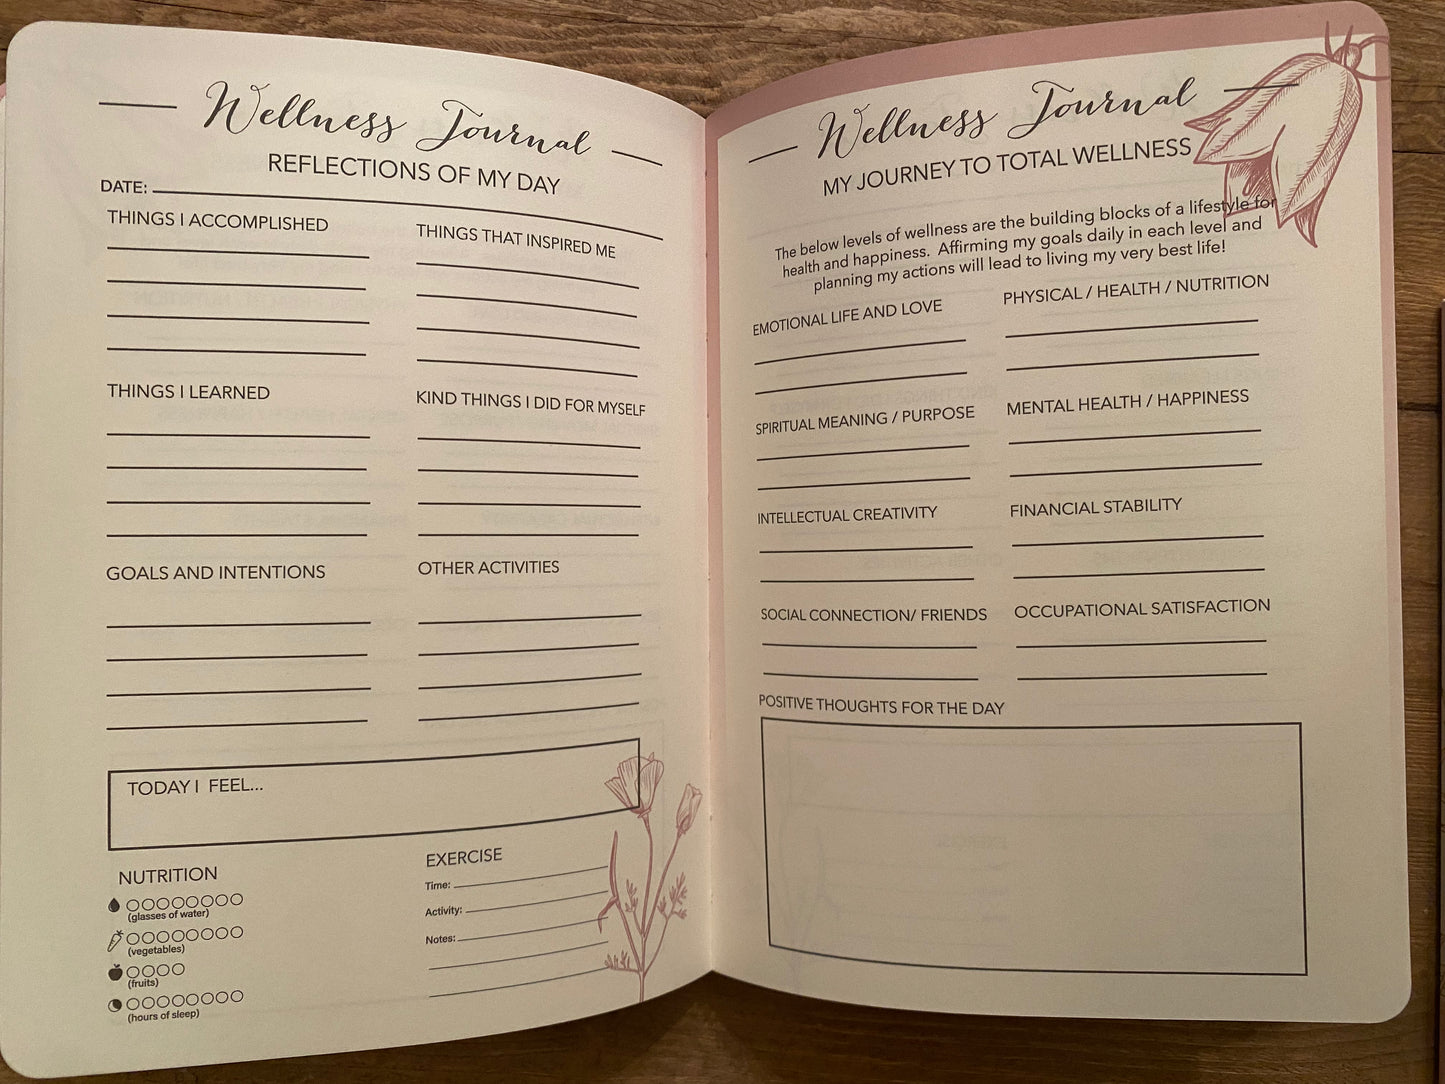 Wellness Journal
REFLECTIONS OF MY DAY
DATE:
THINGS I ACCOMPLISHED
THINGS THAT INSPIRED ME
THINGS I LEARNED
KIND THINGS I DID FOR MYSELF
GOALS AND INTENTIONS
OTHER ACTIVITIES
TODAY I FEEL...
NUTRITION
(glasses of water)
(vegetables)
(fruits)
(hours of sleep)
EXERCISE
Time:
Activity:
Notes:
Wellness Journal
MY JOURNEY TO TOTAL WELLNESS
The below levels of wellness are the building blocks of a lifestyle for
health and happiness. Affirming my goals daily in each level and
planning my actions will lead to living my very best life!
EMOTIONAL LIFE AND LOVE
PHYSICAL / HEALTH / NUTRITION
SPIRITUAL MEANING / PURPOSE
MENTAL HEALTH / HAPPINESS
INTELLECTUAL CREATIVITY
FINANCIAL STABILITY
SOCIAL CONNECTION/ FRIENDS
OCCUPATIONAL SATISFACTION
POSITIVE THOUGHTS FOR THE DAY